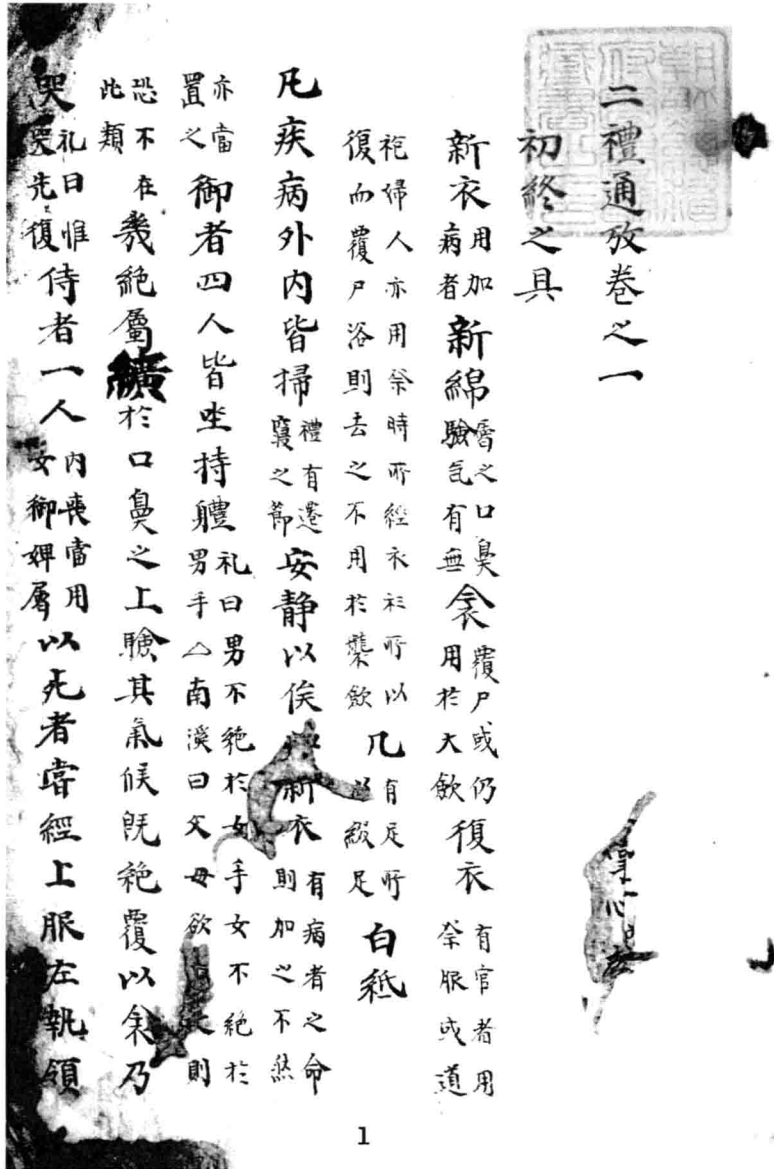 朝鮮總督府圖書館藏書之印
二禮通攷卷之一
初終之具
新衣用加病者新綿屬之口鼻驗气有無衾覆尸或仍用於大歛復衣有官者用祭服或道
袍婦人亦用祭時所經衣衫所以復而覆尸浴則去之不用於襲歛几有足所以綴足白紙
凡疾病外内皆掃禮有遷寢之節安静以俟新衣有病者之命則加之不然
亦當置之御者四人皆坐持軆礼曰男不絶於女手女不絶於男手△南溪曰父母欲則
恐不在此類幾絶屬纊於口鼻之上驗其氣候既絶覆以衾乃
哭礼曰惟哭先復侍者一人内喪當用女御婢属以死者嘗經上服左執領
1